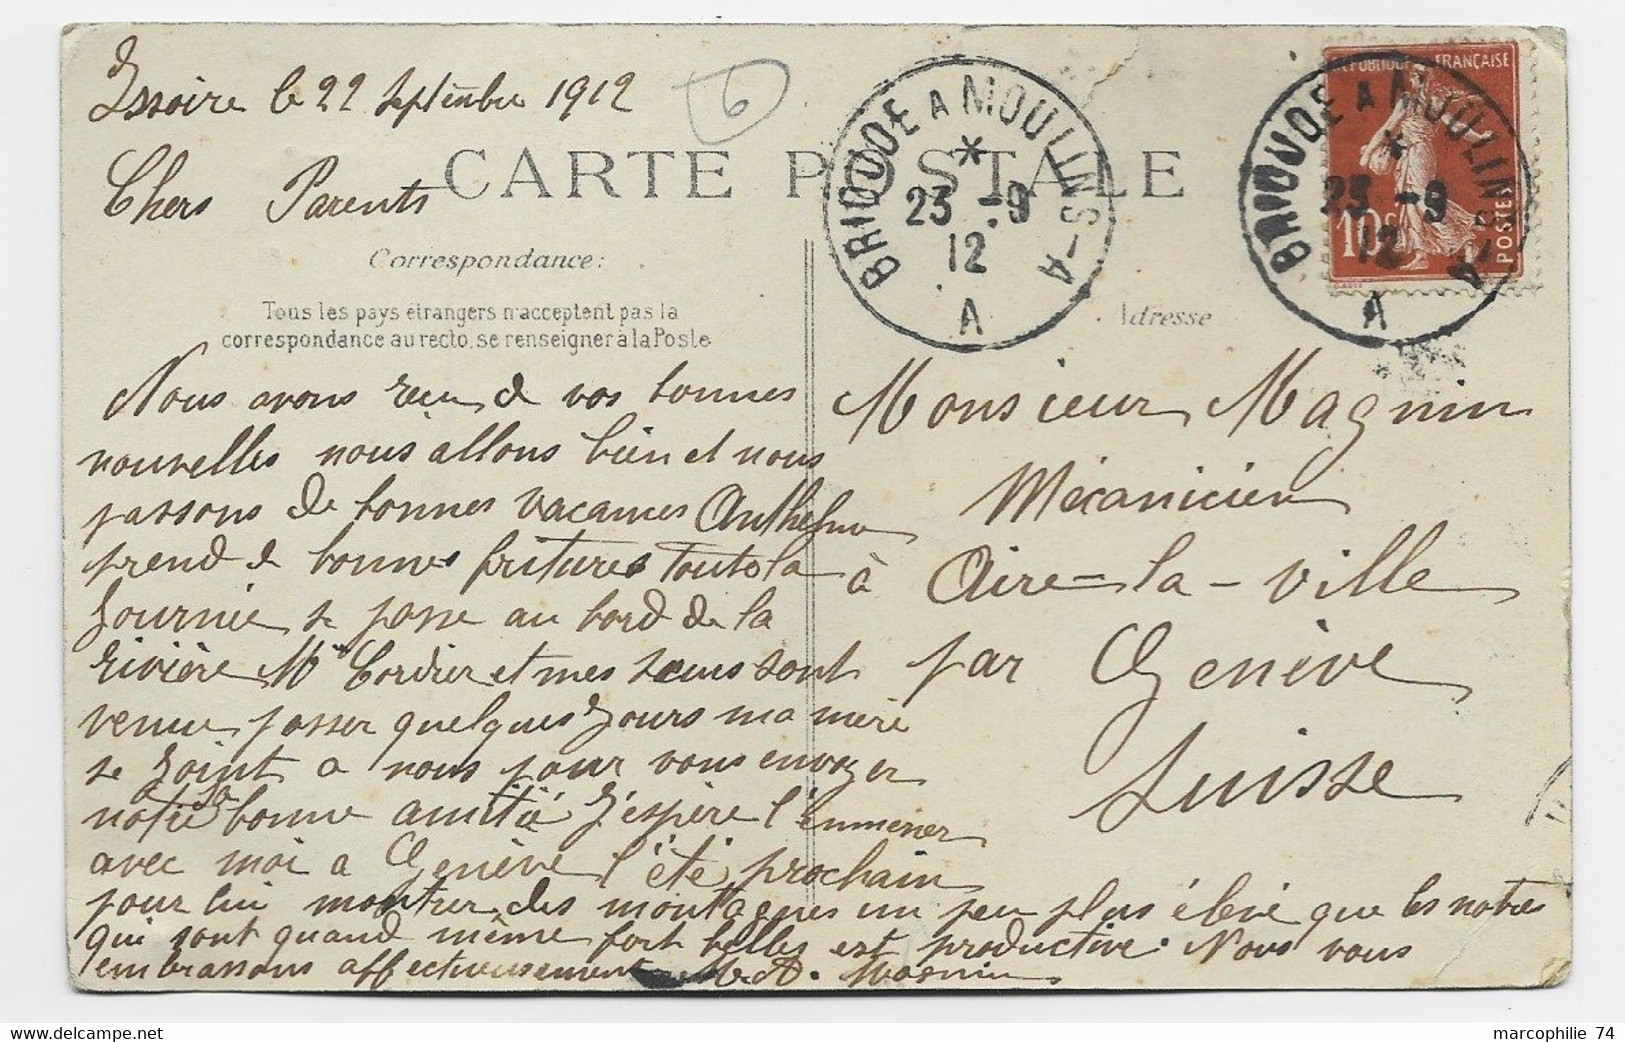 Issoire le 22 Septembre 1912
6
CARTE POSTALE
Chers Parents
Correspondance:
Tous les pays étrangers n'acceptent pas la
correspondance au recto, se renseigner à la Poste
Nous avons reçu de vos bonnes
nouvelles nous allons bien et nous
passons de bonnes vacances Anthelme
prend de bonnes fritures toute la
Journée se passe au bord de la
rivière Mr Cordier et mes sœurs sont
venu passer quelques Jours ma mère
se Joint a nous pour vous envoyer
notre bonne amitié J'espère l'emmener
avec moi a Genève l'été prochain
pour lui montrer des montagnes un peu plus élevé que les notres
qui sont quand même fort belles est productive. Nous vous
embrassons affectueusement M. A. Magnin
BRIOUDE A MOULINS-A
*
23 -9
12
A
BRIOUDE A MOULINS-A
*
23 -9
12
A
REPUBLIQUE FRANÇAISE
10c
POSTES
Adresse
Monsieur Magnin
Mécanicien
à Aire-la-ville
par Genève
Suisse
marcophilie 74